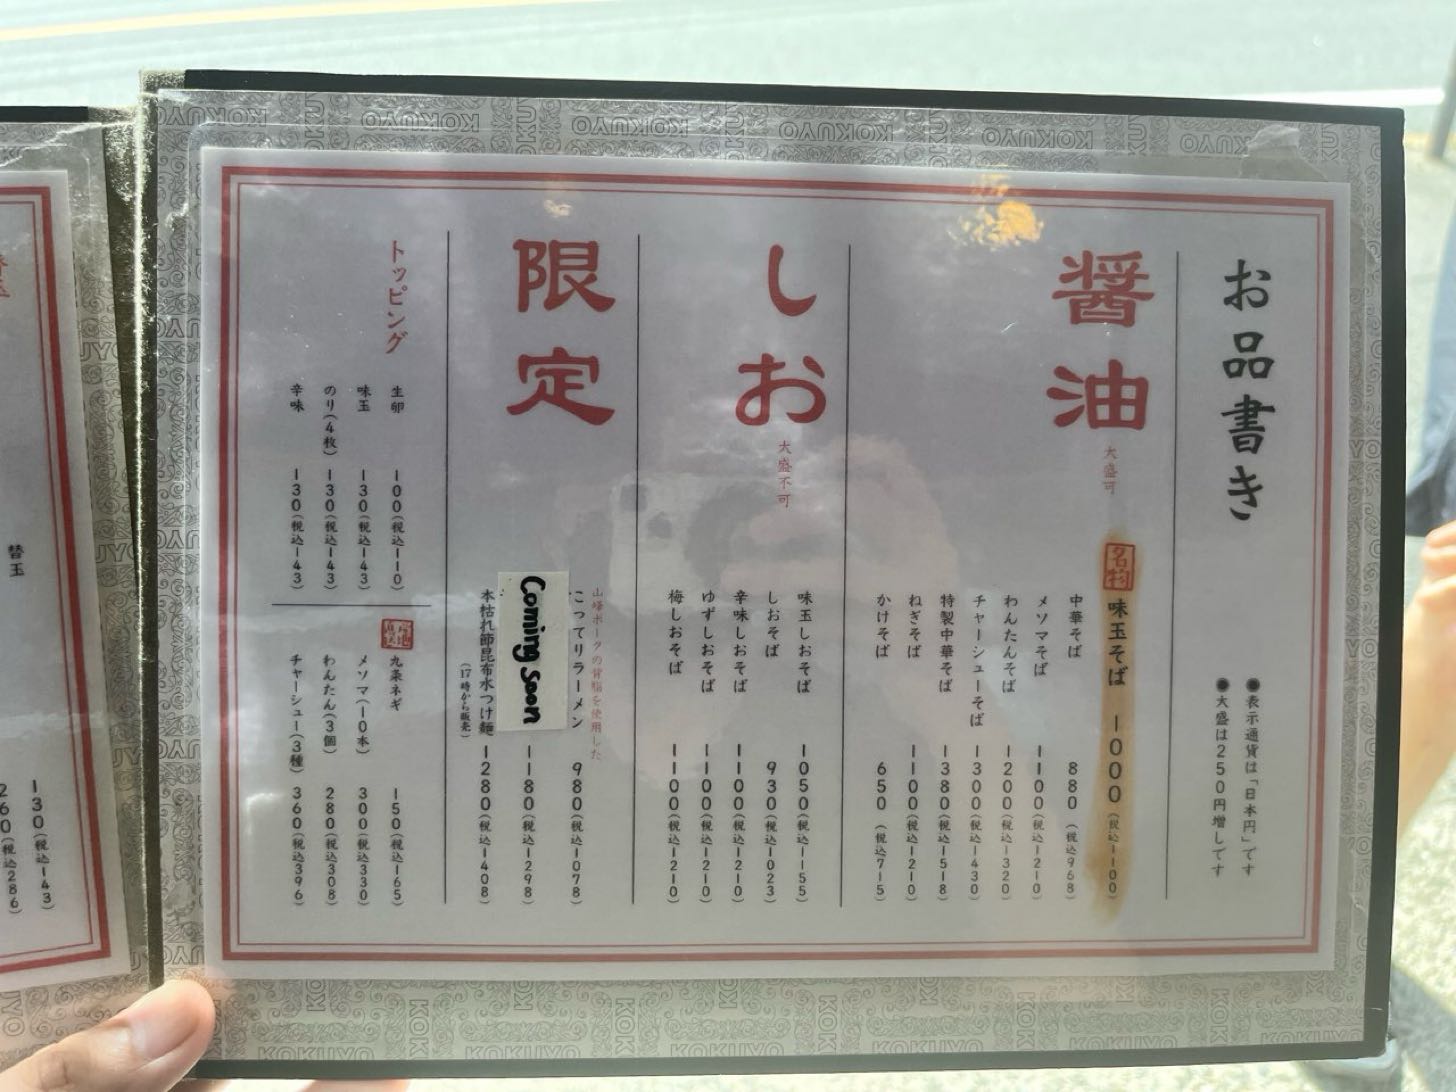 お品書き
●表示通貨は「日本円」です
●大盛は250円増しです
醤油
大盛可
名物
味玉そば 1000(税込1100)
中華そば 880(税込968)
メンマそば 1100(税込1210)
わんたんそば 1200(税込1320)
チャーシューそば 1300(税込1430)
特製中華そば 1380(税込1518)
ねぎそば 1100(税込1210)
かけそば 650(税込715)
しお
大盛不可
味玉しおそば 1050(税込1155)
しおそば 930(税込1023)
辛味しおそば 1100(税込1210)
ゆずしおそば 1100(税込1210)
梅しおそば 1100(税込1210)
限定
山峰ポークの背脂を使用した
こってりラーメン 980(税込1078)
Coming Soon
1180(税込1298)
本枯れ節昆布水つけ麺 1280(税込1408)
(17時から販売)
トッピング
生卵 100(税込110)
味玉 130(税込143)
のり(4枚) 130(税込143)
辛味 130(税込143)
九条ネギ 150(税込165)
メンマ(10本) 300(税込330)
わんたん(3個) 280(税込308)
チャーシュー(3種) 360(税込396)
替玉
130(税込143)
260(税込286)
KOKUYO